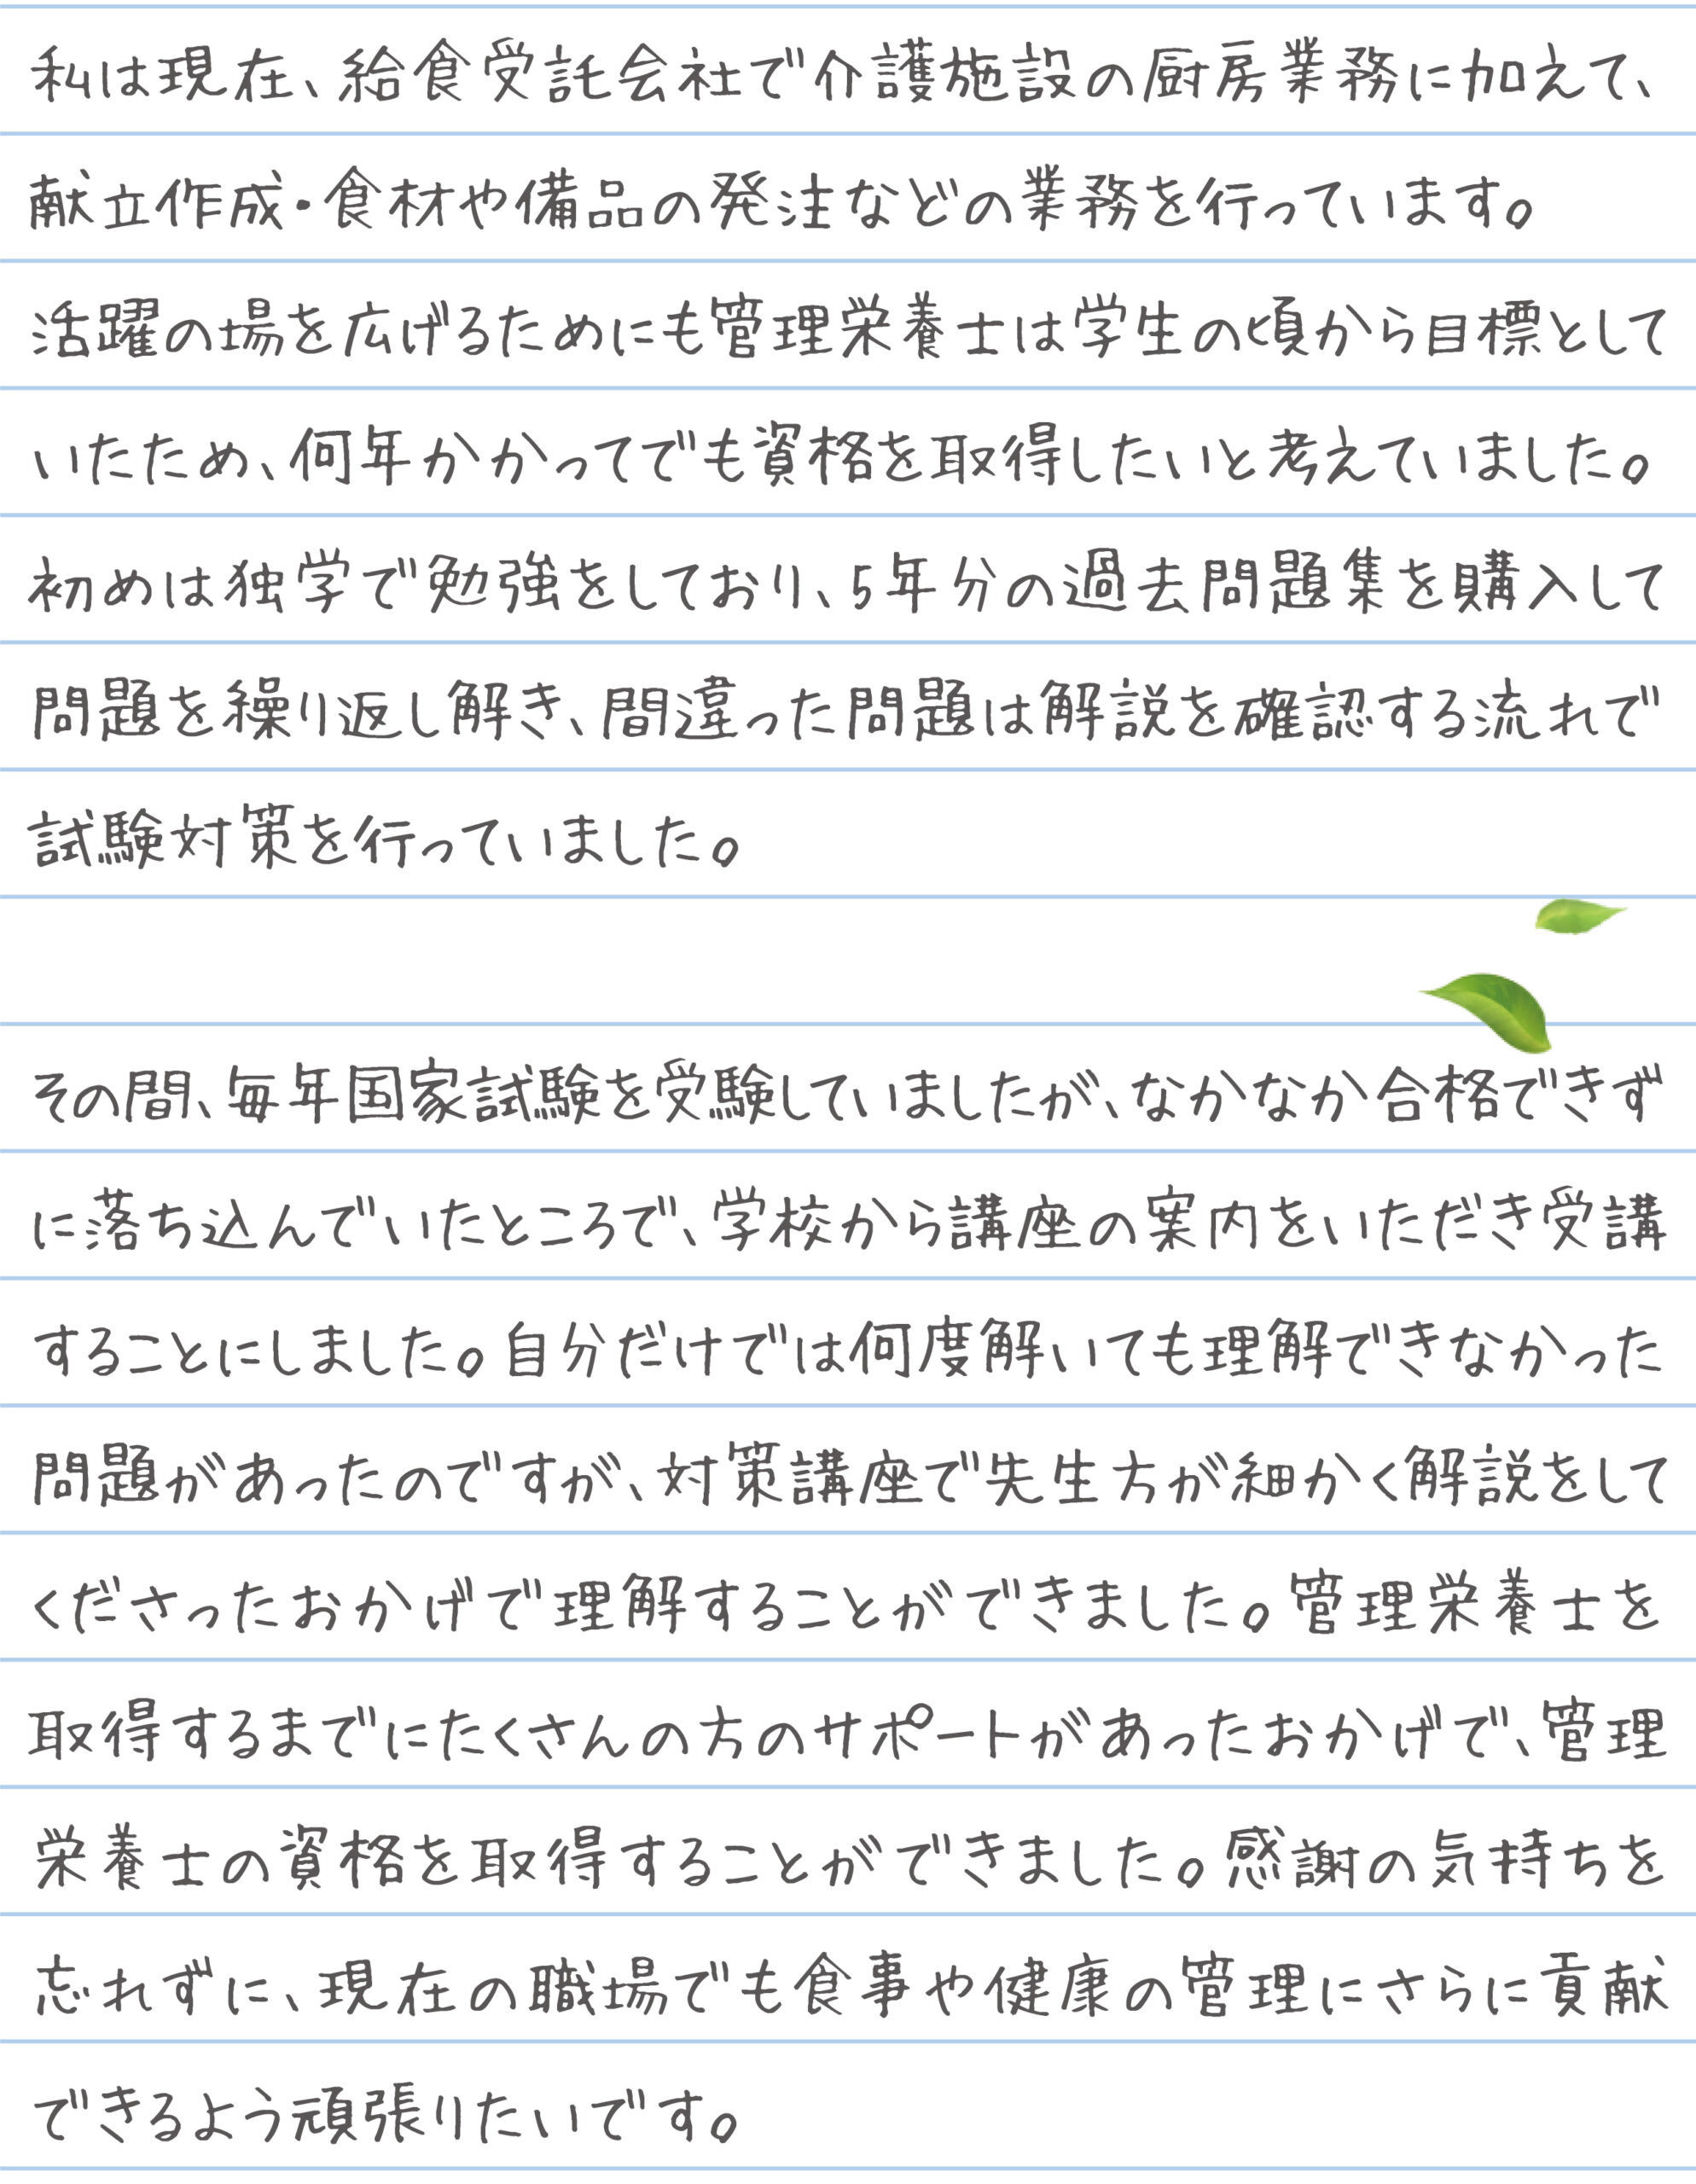 私は現在、給食受託会社で介護施設の厨房業務に加えて、
献立作成・食材や備品の発注などの業務を行っています。
活躍の場を広げるためにも管理栄養士は学生の頃から目標として
いたため、何年かかってでも資格を取得したいと考えていました。
初めは独学で勉強をしており、5年分の過去問題集を購入して
問題を繰り返し解き、間違った問題は解説を確認する流れで
試験対策を行っていました。
その間、毎年国家試験を受験していましたが、なかなか合格できず
に落ち込んでいたところで、学校から講座の案内をいただき受講
することにしました。自分だけでは何度解いても理解できなかった
問題があったのですが、対策講座で先生方が細かく解説をして
くださったおかげで理解することができました。管理栄養士を
取得するまでにたくさんの方のサポートがあったおかげで、管理
栄養士の資格を取得することができました。感謝の気持ちを
忘れずに、現在の職場でも食事や健康の管理にさらに貢献
できるよう頑張りたいです。